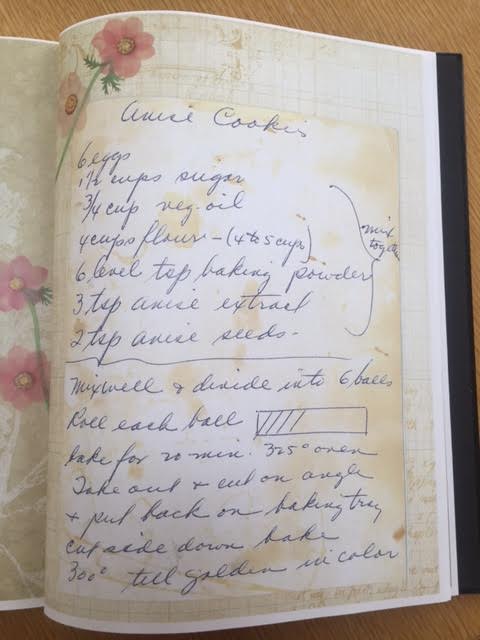 Anise Cookies
6 eggs
1½ cups sugar
3/4 cup veg oil
4 cups flour - (4 to 5 cups)
6 level tsp baking powder
3 tsp anise extract
2 tsp anise seeds -
mix
together
Mix well & divide into 6 balls
Roll each ball
bake for 20 min. 325° oven
Take out & cut on angle
& put back on baking tray
cut side down bake
300° till golden in color